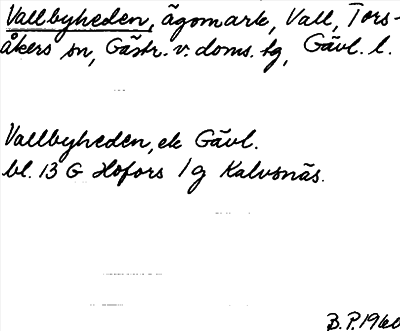 Vallbyheden, ägomark, Vall, Tors-
åkers sn, Gästr. v. doms. tg, Gävl. l.
Vallbyheden, ek Gävl.
bl. 13 G Hofors 1g Kalvsnäs.
B.P. 1960